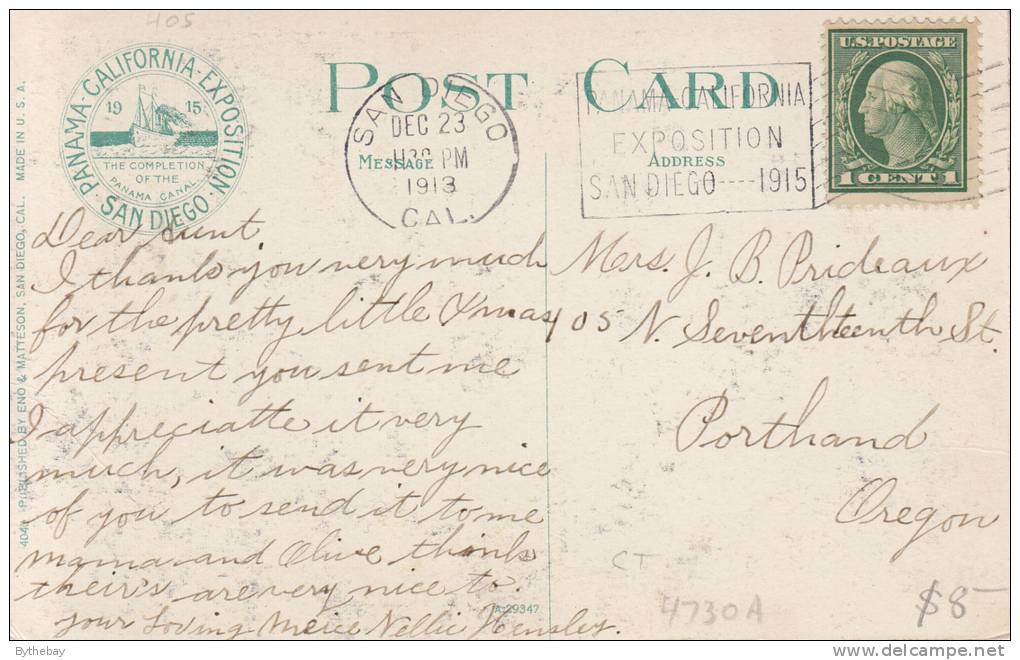 405
PANAMA-CALIFORNIA-EXPOSITION
1915
THE COMPLETION
OF THE
PANAMA CANAL
SAN DIEGO
POST CARD
MESSAGE
ADDRESS
SAN DIEGO
DEC 23
PM
1913
CAL.
PANAMA-CALIFORNIA
EXPOSITION
SAN DIEGO----1915
U.S. POSTAGE
1 CENT 1
PUBLISHED BY ENO & MATTESON, SAN DIEGO, CAL. MADE IN U. S. A.
Dear Aunt,
I thank you very much
for the pretty little Xmas
present you sent me
I appreciatte it very
much, it was very nice
of you to send it to me
mama and Olive thinks
their's are very nice to.
your Loving Neice Nellie Hensley.
Mrs. J. B. Prideaux
405 N. Seventheenth St.
Porthand
Oregon
CT
A-29347
4730A
$8-
Bythebay
delcampe.net